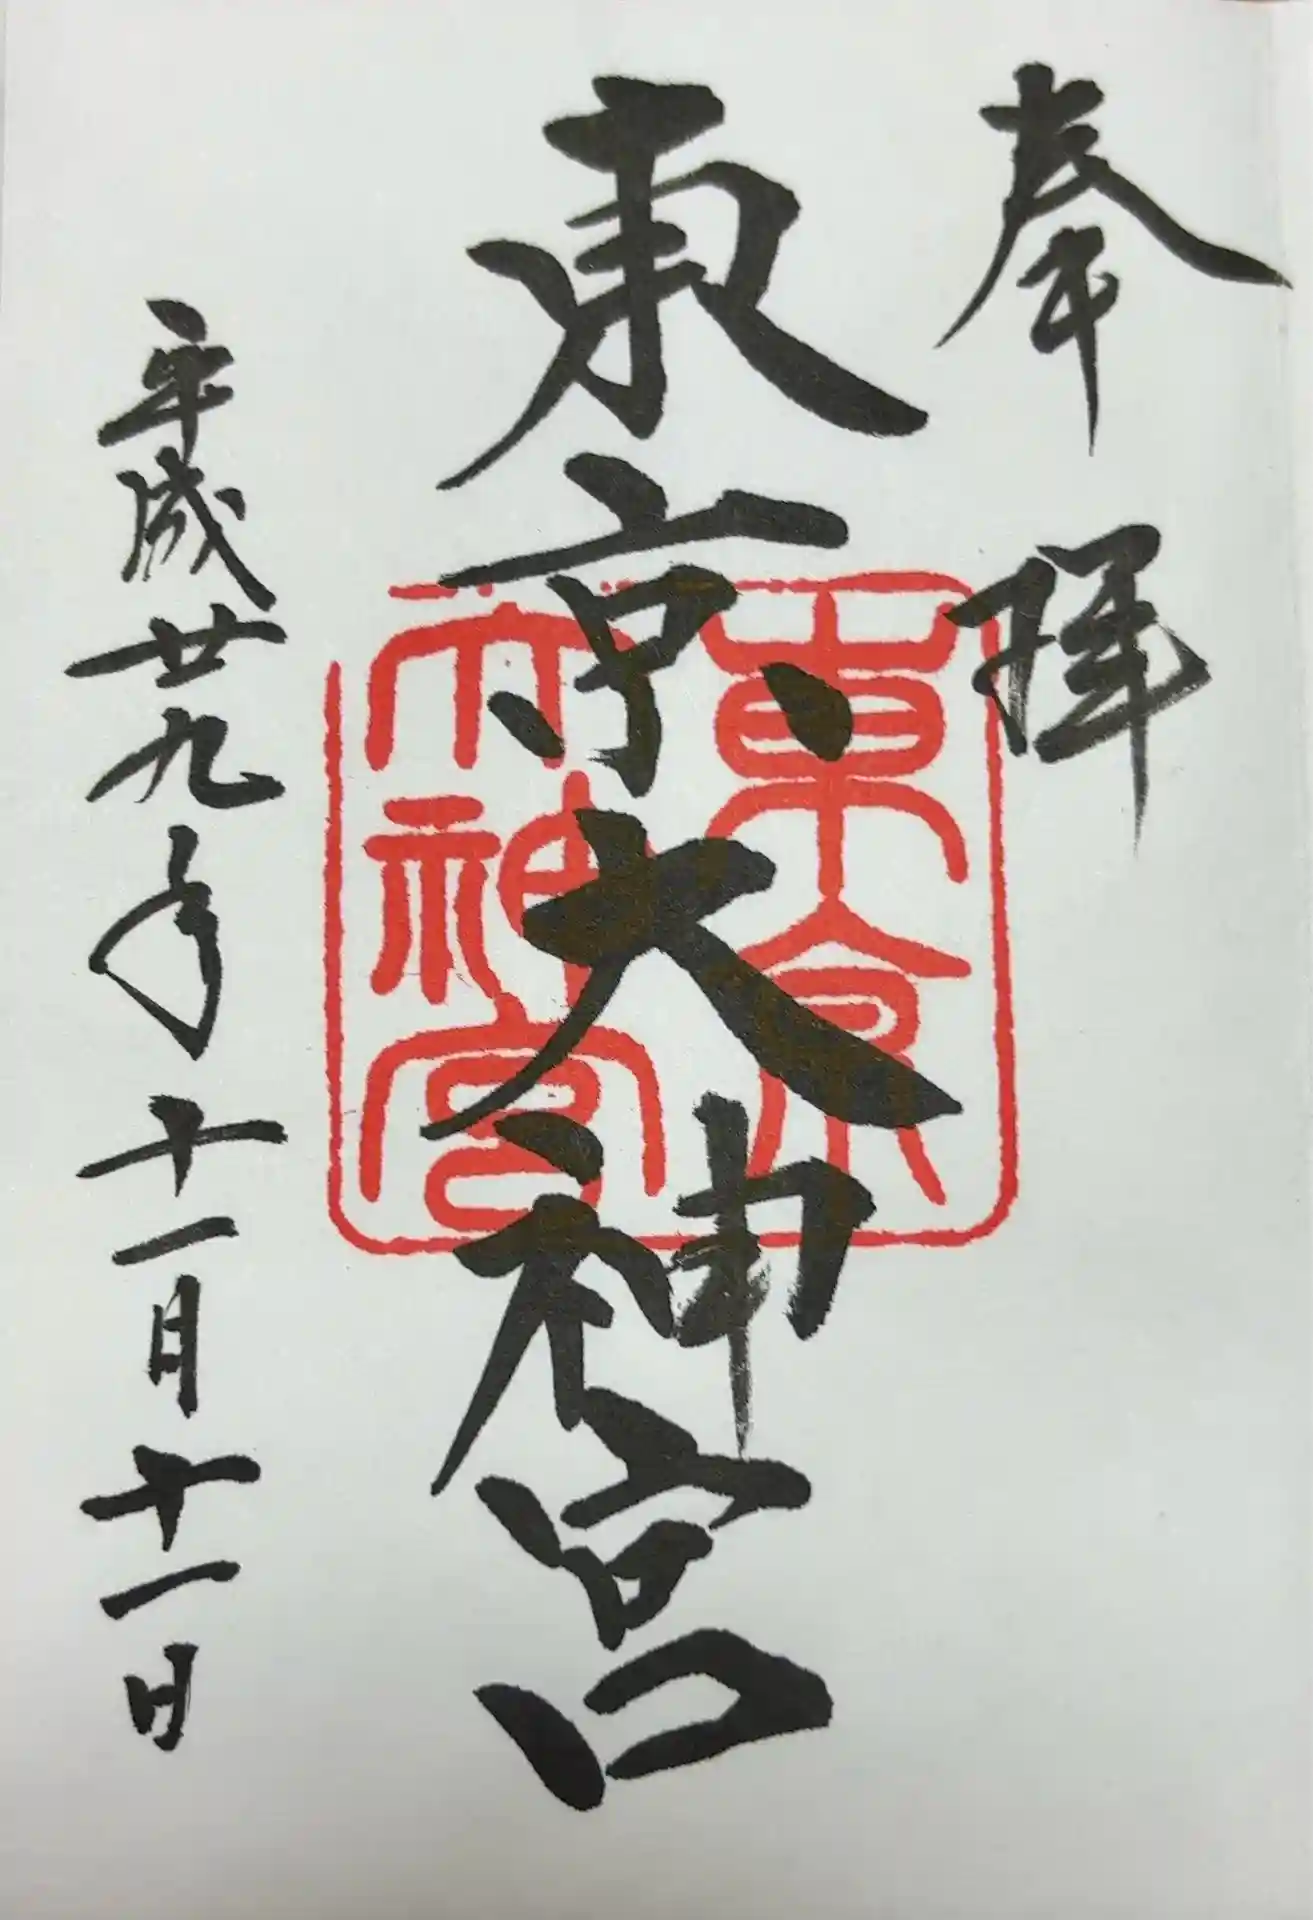 奉拝
東京大神宮
東京大神宮
平成廿九年十一月十一日